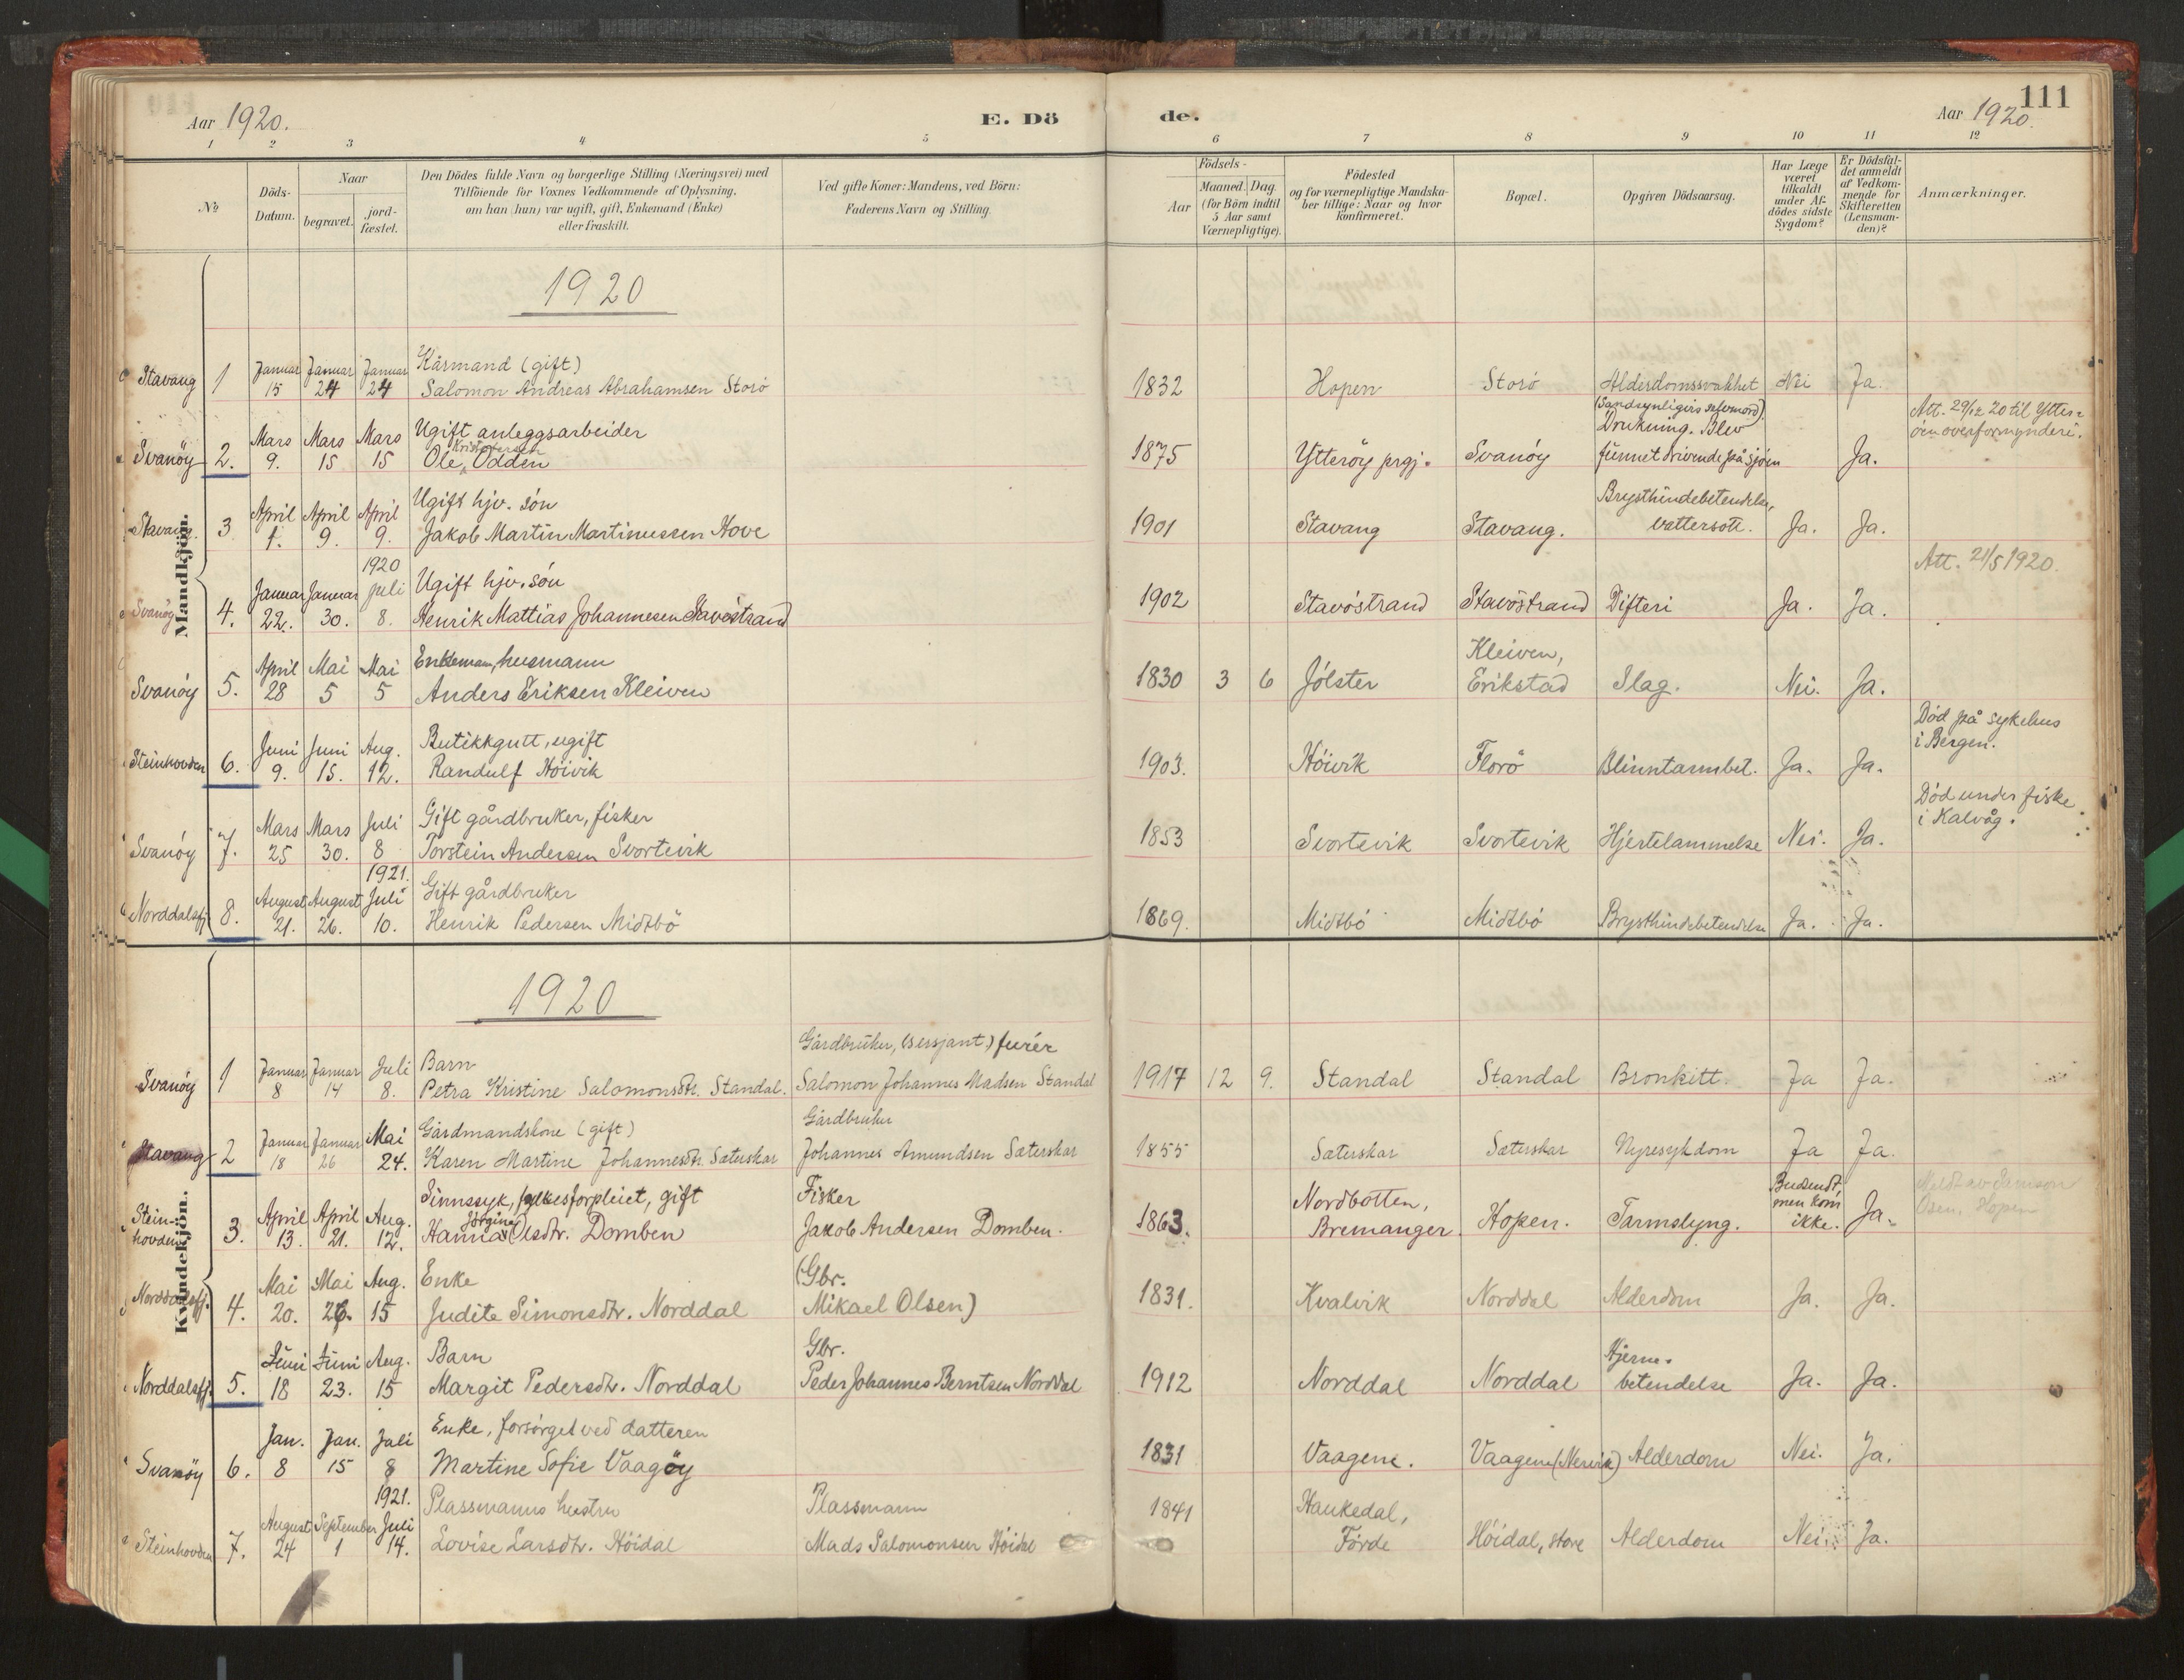 Aar 1920.
E. Dö
de.
Aar 1920.
111
1 2 3 4 5 6 7 8 9 10 11 12
No
Döds-
Datum.
Naar
begravet.
jord-
fæstet.
Den Dödes fulde Navn og borgerlige Stilling (Næringsvei) med
Tilföiende for Voxnes Vedkommende af Oplysning,
om han (hun) var ugift, gift, Enkemand (Enke)
eller fraskilt.
Ved gifte Koner: Mandens, ved Börn:
Faderens Navn og Stilling.
Födsels-
Aar
Maaned. Dag.
(for Börn indtil
5 Aar samt
Værnepligtige).
Födested
og for værnepligtige Mandska-
ber tillige: Naar og hvor
Konfirmeret.
Bopæl.
Opgiven Dödsaarsag.
Har Læge
været
tilkaldt
under Af-
dödes sidste
Sygdom?
Er Dödsfal-
det anmeldt
af Vedkom-
mende for
Skifteretten
(Lensman-
den)?
Anmærkninger.
Mandkjön.
1920
Januar Januar Januar Kårmand (gift)
Stavang 1 15 24 24 Salomon Andreas Abrahamsen Storö 1832 Hopen Storö Alderdomssvakhet Nei Ja.
Mars Mars Mars Ugift anleggsarbeider (Sandsynligvis selvmord) Att. 29/12 20 til Ytter-
Kristofersen Drukning. Blev öen overformynderi.
Svanöy 2. 9. 15 15 Ole Odden 1875 Ytteröy prgj. Svanöy funnet drivende på sjöen Ja.
April April April Ugift hjv. sön Brysthindebetendelse,
Stavang. 3 1. 9. 9. Jakob Martin Martinussen Hove 1901 Stavang Stavang. vattersott. Ja. Ja.
1920 Att. 21/5 1920.
Januar Januar juli Ugift hjv. sön
Svanöy 4. 22. 30. 8. Henrik Mattias Johannesen Stavöstrand 1902 Stavöstrand Stavöstrand Difteri Ja. Ja.
April Mai Mai Enkemann, husmann Kleiven,
Svanöy 5. 28 5 5 Anders Eriksen Kleiven 1830 3 6 Jölster Erikstad Slag. Nei. Ja.
Juni Juni Aug. Butikkgutt, ugift Död på sykehus
i Bergen.
Steinhovden 6. 9. 15. 12. Randulf Höivik 1903. Höivik Florö Blinntarmbet. Ja. Ja.
Mars Mars Juli Gift gårdbruker, fisker Död under fiske
i Kalvåg.
Svanöy 7. 25 30. 8 Torstein Andersen Svortevik 1853 Svortevik Svortevik Hjertelammelse Nei. Ja.
1921.
August August Juli Gift gårdbruker
Norddalsfj. 8. 21. 26. 10. Henrik Pedersen Midtbö 1869. Midtbö Midtbö Brysthindebetendelse Ja. Ja.
Kvindekjön.
1920
Gårdbruker, (sersjant) furér
Januar Januar Juli Barn
Svanöy 1 8 14 8. Petra Kristine Salomonsdtr. Standal. Salomon Johannes Madsen Standal 1917 12 9. Standal Standal Bronkitt. Ja Ja.
Januar Januar Mai Gårdmandskone (gift) Gårdbruker
Stavang 2 18 26 24. Karen Martine Johannesdtr. Sæterskar Johannes Amundsen Sæterskar 1855 Sæterskar Sæterskar Nyresykdom Ja Ja.
April April Aug. Sinnssyk, fylkesforpleiet, gift Fisker Nordbotten, Budsendt, Meldt av Samson
Stein-
hovden 3. 13. 21. 12. Hanna Jörgine Olsdtr. Domben Jakob Andersen Domben. 1863. Bremanger. Hopen. Tarmslyng. men kom ikke. Ja. Osen, Hopen
Mai Mai Aug. Enke (Gbr.
Norddalsfj. 4. 20. 26. 15 Judite Simonsdtr. Norddal Mikael Olsen) 1831. Kvalvik Norddal Alderdom Ja. Ja.
Juni Juni Aug. Barn Gbr. Hjerne-
Norddalsfj. 5. 18 23. 15 Margit Pedersdtr. Norddal Peder Johannes Berntsen Norddal 1912 Norddal Norddal betendelse Ja. Ja.
Jan. Jan. Juli Enke, forsörget ved datteren
Svanöy 6. 8 15 8 Martine Sofie Vaagöy 1831 Vaagene. Vaagene (Nerevik) Alderdom Nei. Ja.
1921.
August September Juli Plassmanns hustru Plassmann Haukedal,
Steinhovden 7. 24 1 14. Lovise Larsdtr. Höidal Mads Salomonsen Höidal 1841 Förde Höidal, store Alderdom Nei. Ja.